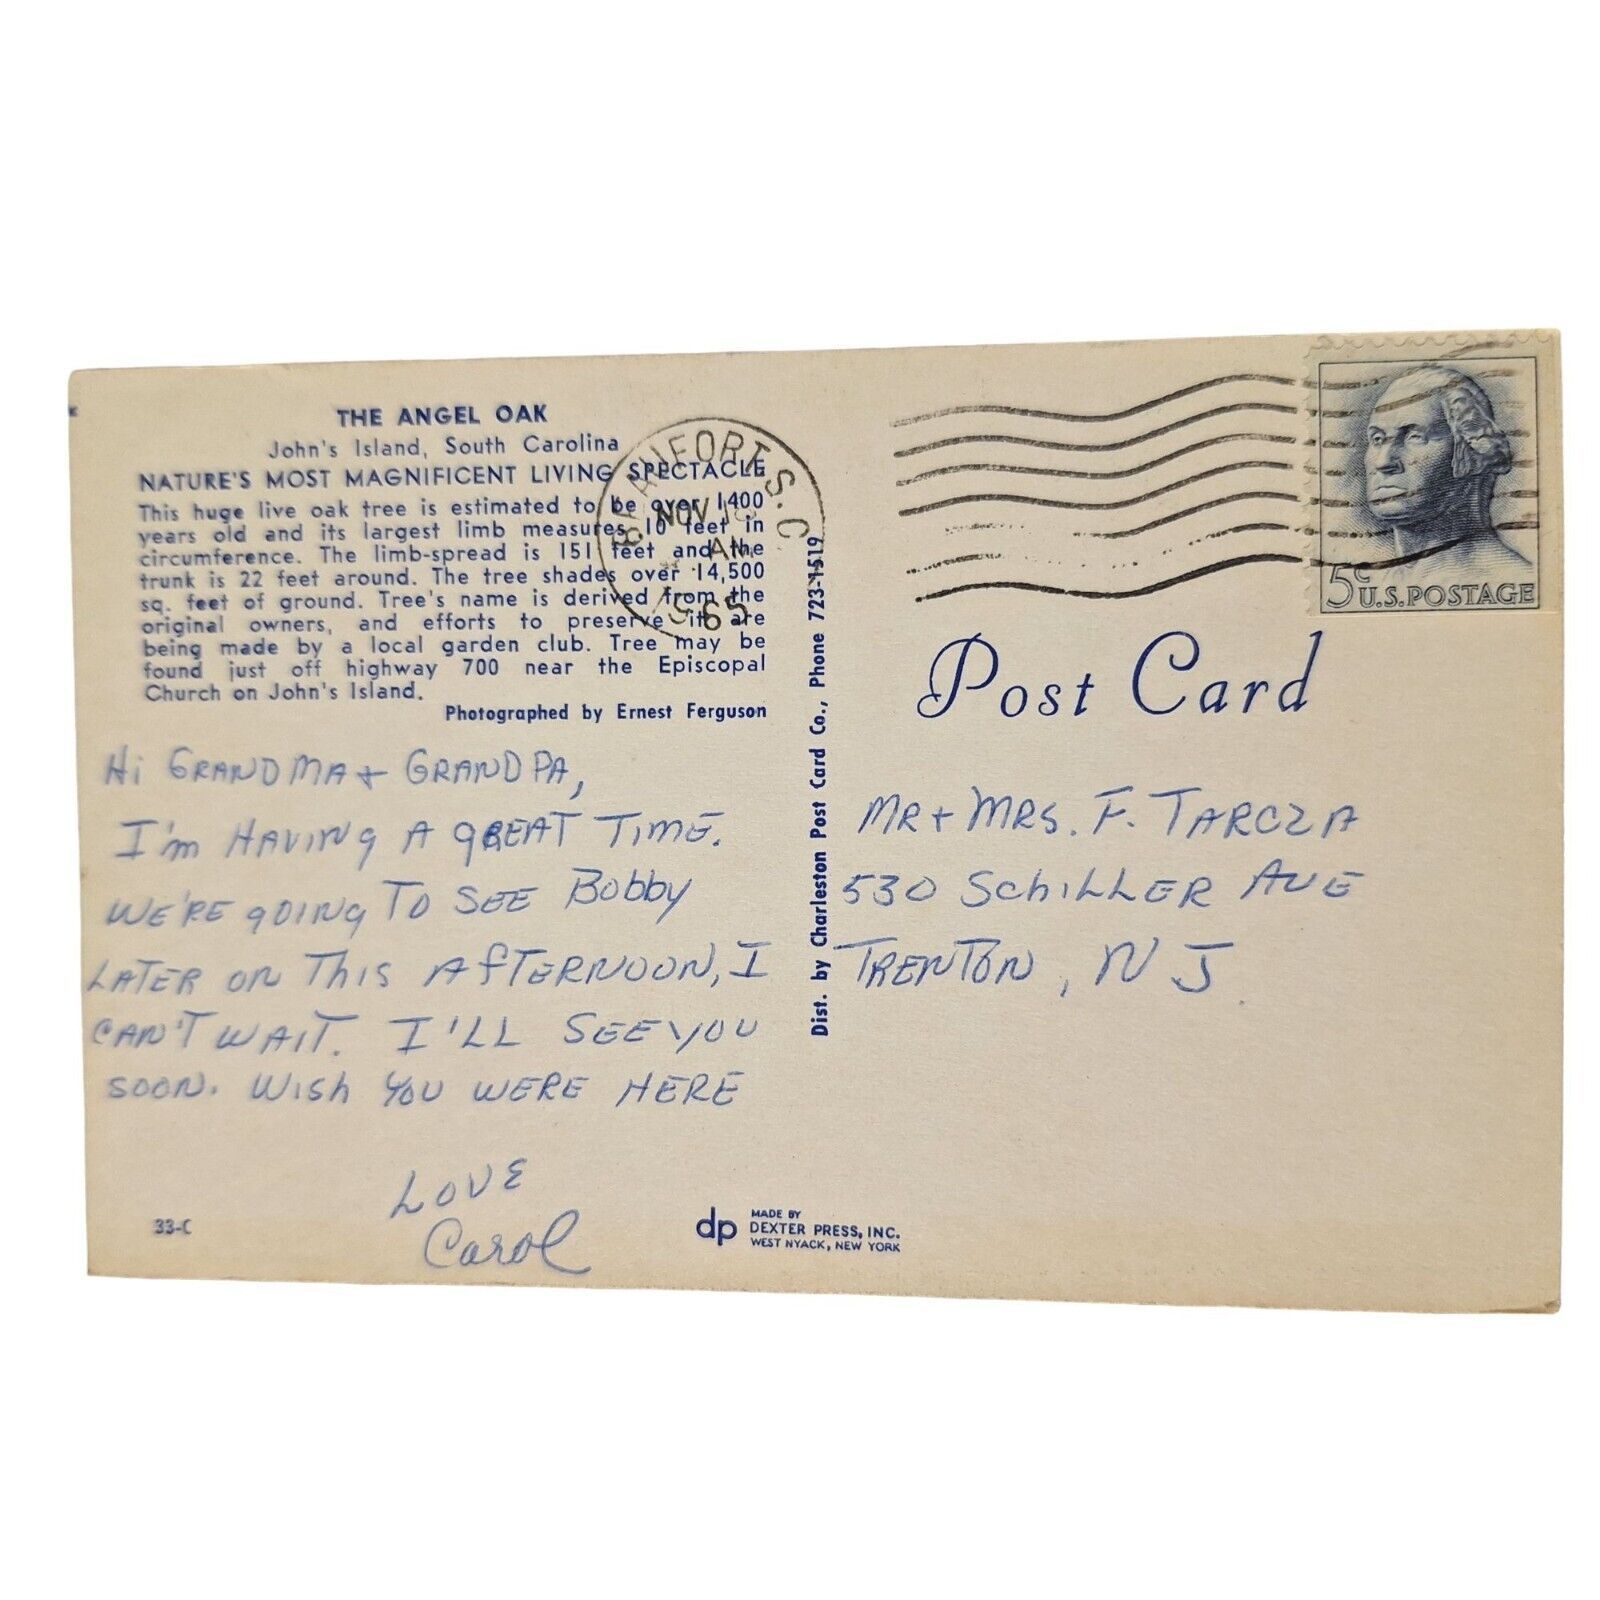 THE ANGEL OAK
John's Island, South Carolina
NATURE'S MOST MAGNIFICENT LIVING SPECTACLE
This huge live oak tree is estimated to be over 1400
years old and its largest limb measures 10 feet in
circumference. The limb-spread is 151 feet and the
trunk is 22 feet around. The tree shades over 14,500
sq. feet of ground. Tree's name is derived from the
original owners, and efforts to preserve it are
being made by a local garden club. Tree may be
found just off highway 700 near the Episcopal
Church on John's Island.
Photographed by Ernest Ferguson
Hi GRANDMA + GRANDPA,
I'm HAVING A gREAT TIME.
WE'RE gOING TO SEE Bobby
LATER ON THIS AfTERNOON, I
CAN'T WAIT. I'LL SEE YOU
SOON. WISh YOU WERE HERE
LOVE
Carol
33-C
dp
MADE BY
DEXTER PRESS, INC.
WEST NYACK, NEW YORK
Dist. by Charleston Post Card Co., Phone 723-1519
S.C.
NOV
AM
1965
5c U.S. POSTAGE
Post Card
MR + MRS. F. TARCZA
530 SchiLLER AVE
TRENTON, N J.